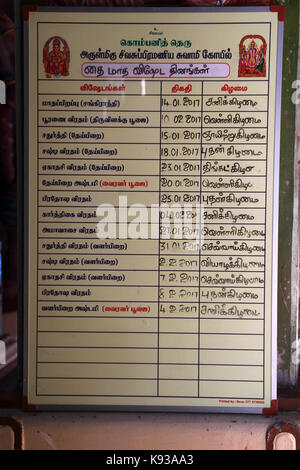 உ
சிவமயம்
கொம்பனித் தெரு
அருள்மிகு சிவசுப்பிரமணிய சுவாமி கோயில்
தை மாத விஷேட தினங்கள்
விஷேடங்கள் திகதி கிழமை
மாதப்பிறப்பு (சங்கிராந்தி) 14.01.2017 சனிக்கிழமை
பூரணை விரதம் (திருவிளக்கு பூஜை) 10.02.2017 வெள்ளிக்கிழமை
சதுர்த்தி விரதம் (தேய்பிறை) 15.01.2017 ஞாயிற்றுகிழமை
சஷ்டி விரதம் (தேய்பிறை) 18.01.2017 புதன்கிழமை
ஏகாதசி விரதம் (தேய்பிறை) 23.01.2017 திங்கட்கிழமை
தேய்பிறை அஷ்டமி (வைரவர் பூஜை) 20.01.2017 வெள்ளிகிழமை
பிரதோஷ விரதம் 25.01.2017 புதன்கிழமை
கார்த்திகை விரதம் 04.02.2017 சனிக்கிழமை
அமாவாசை விரதம் 27.01.2017 வெள்ளிகிழமை
சதுர்த்தி விரதம் (வளர்பிறை) 31.01.2017 செவ்வாய்கிழமை
சஷ்டி விரதம் (வளர்பிறை) 2.2.2017 வியாழக்கிழமை
ஏகாதசி விரதம் (வளர்பிறை) 7.2.2017 செவ்வாய்கிழமை
பிரதோஷ விரதம் 8.2.2017 புதன்கிழமை
வளர்பிறை அஷ்டமி (வைரவர் பூஜை) 4.2.2017 சனிக்கிழமை
alamy